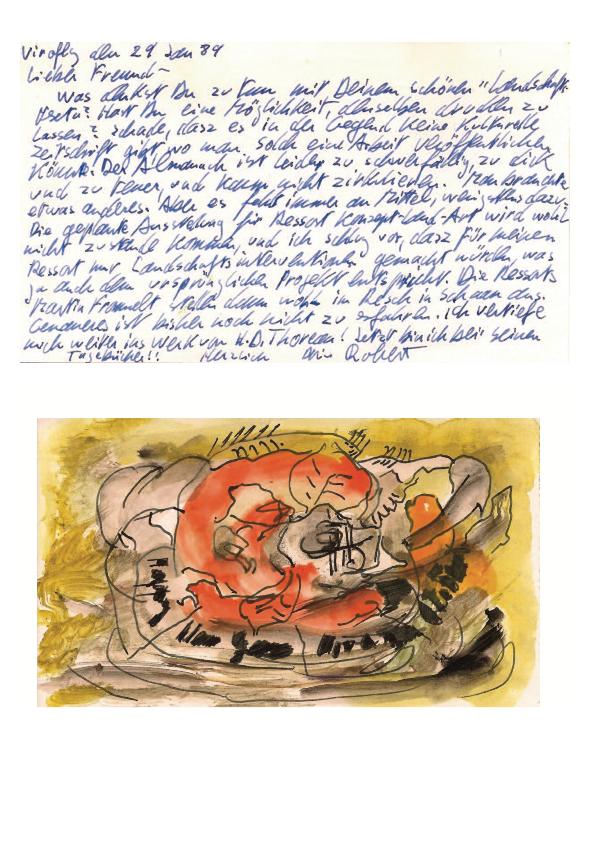 Viroflay den 29 Jan 89
Lieber Freund -
Was denkst Du zu tun mit Deinem schönen "Landschaft-
Hast Du eine Möglichkeit, denselben drucken zu
lassen? Schade, dasz es in der Gegend keine Kulturelle
Zeitschrift gibt wo man solch eine Arbeit veröffentlichen
könnte. Der Almanach ist leider zu schwerfällig, zu dick
und zu teuer, und kann nicht zirkulieren. Man brauchte
etwas anderes. Aber es fehlt immer an Mittel, wenigstens dazu.
Die geplante Ausstellung für Ressort Konzept-Land-Art wird wohl
nicht zustande kommen, und ich schlug vor, dasz für meinen
Ressort nur Landschaftsinterventionen gemacht würden, was
ja auch dem ursprünglichen Projekt entspricht. Die Ressorts
Martin Frommelt stellen dann wohl im Resch in Schaan aus.
Genaueres ist bisher noch nicht zu erfahren. Ich vertiefe
mich weiter ins Werk von H.D. Thoreau! Jetzt bin ich bei seinen
Tagebücher!! Herzlich Dein Robert